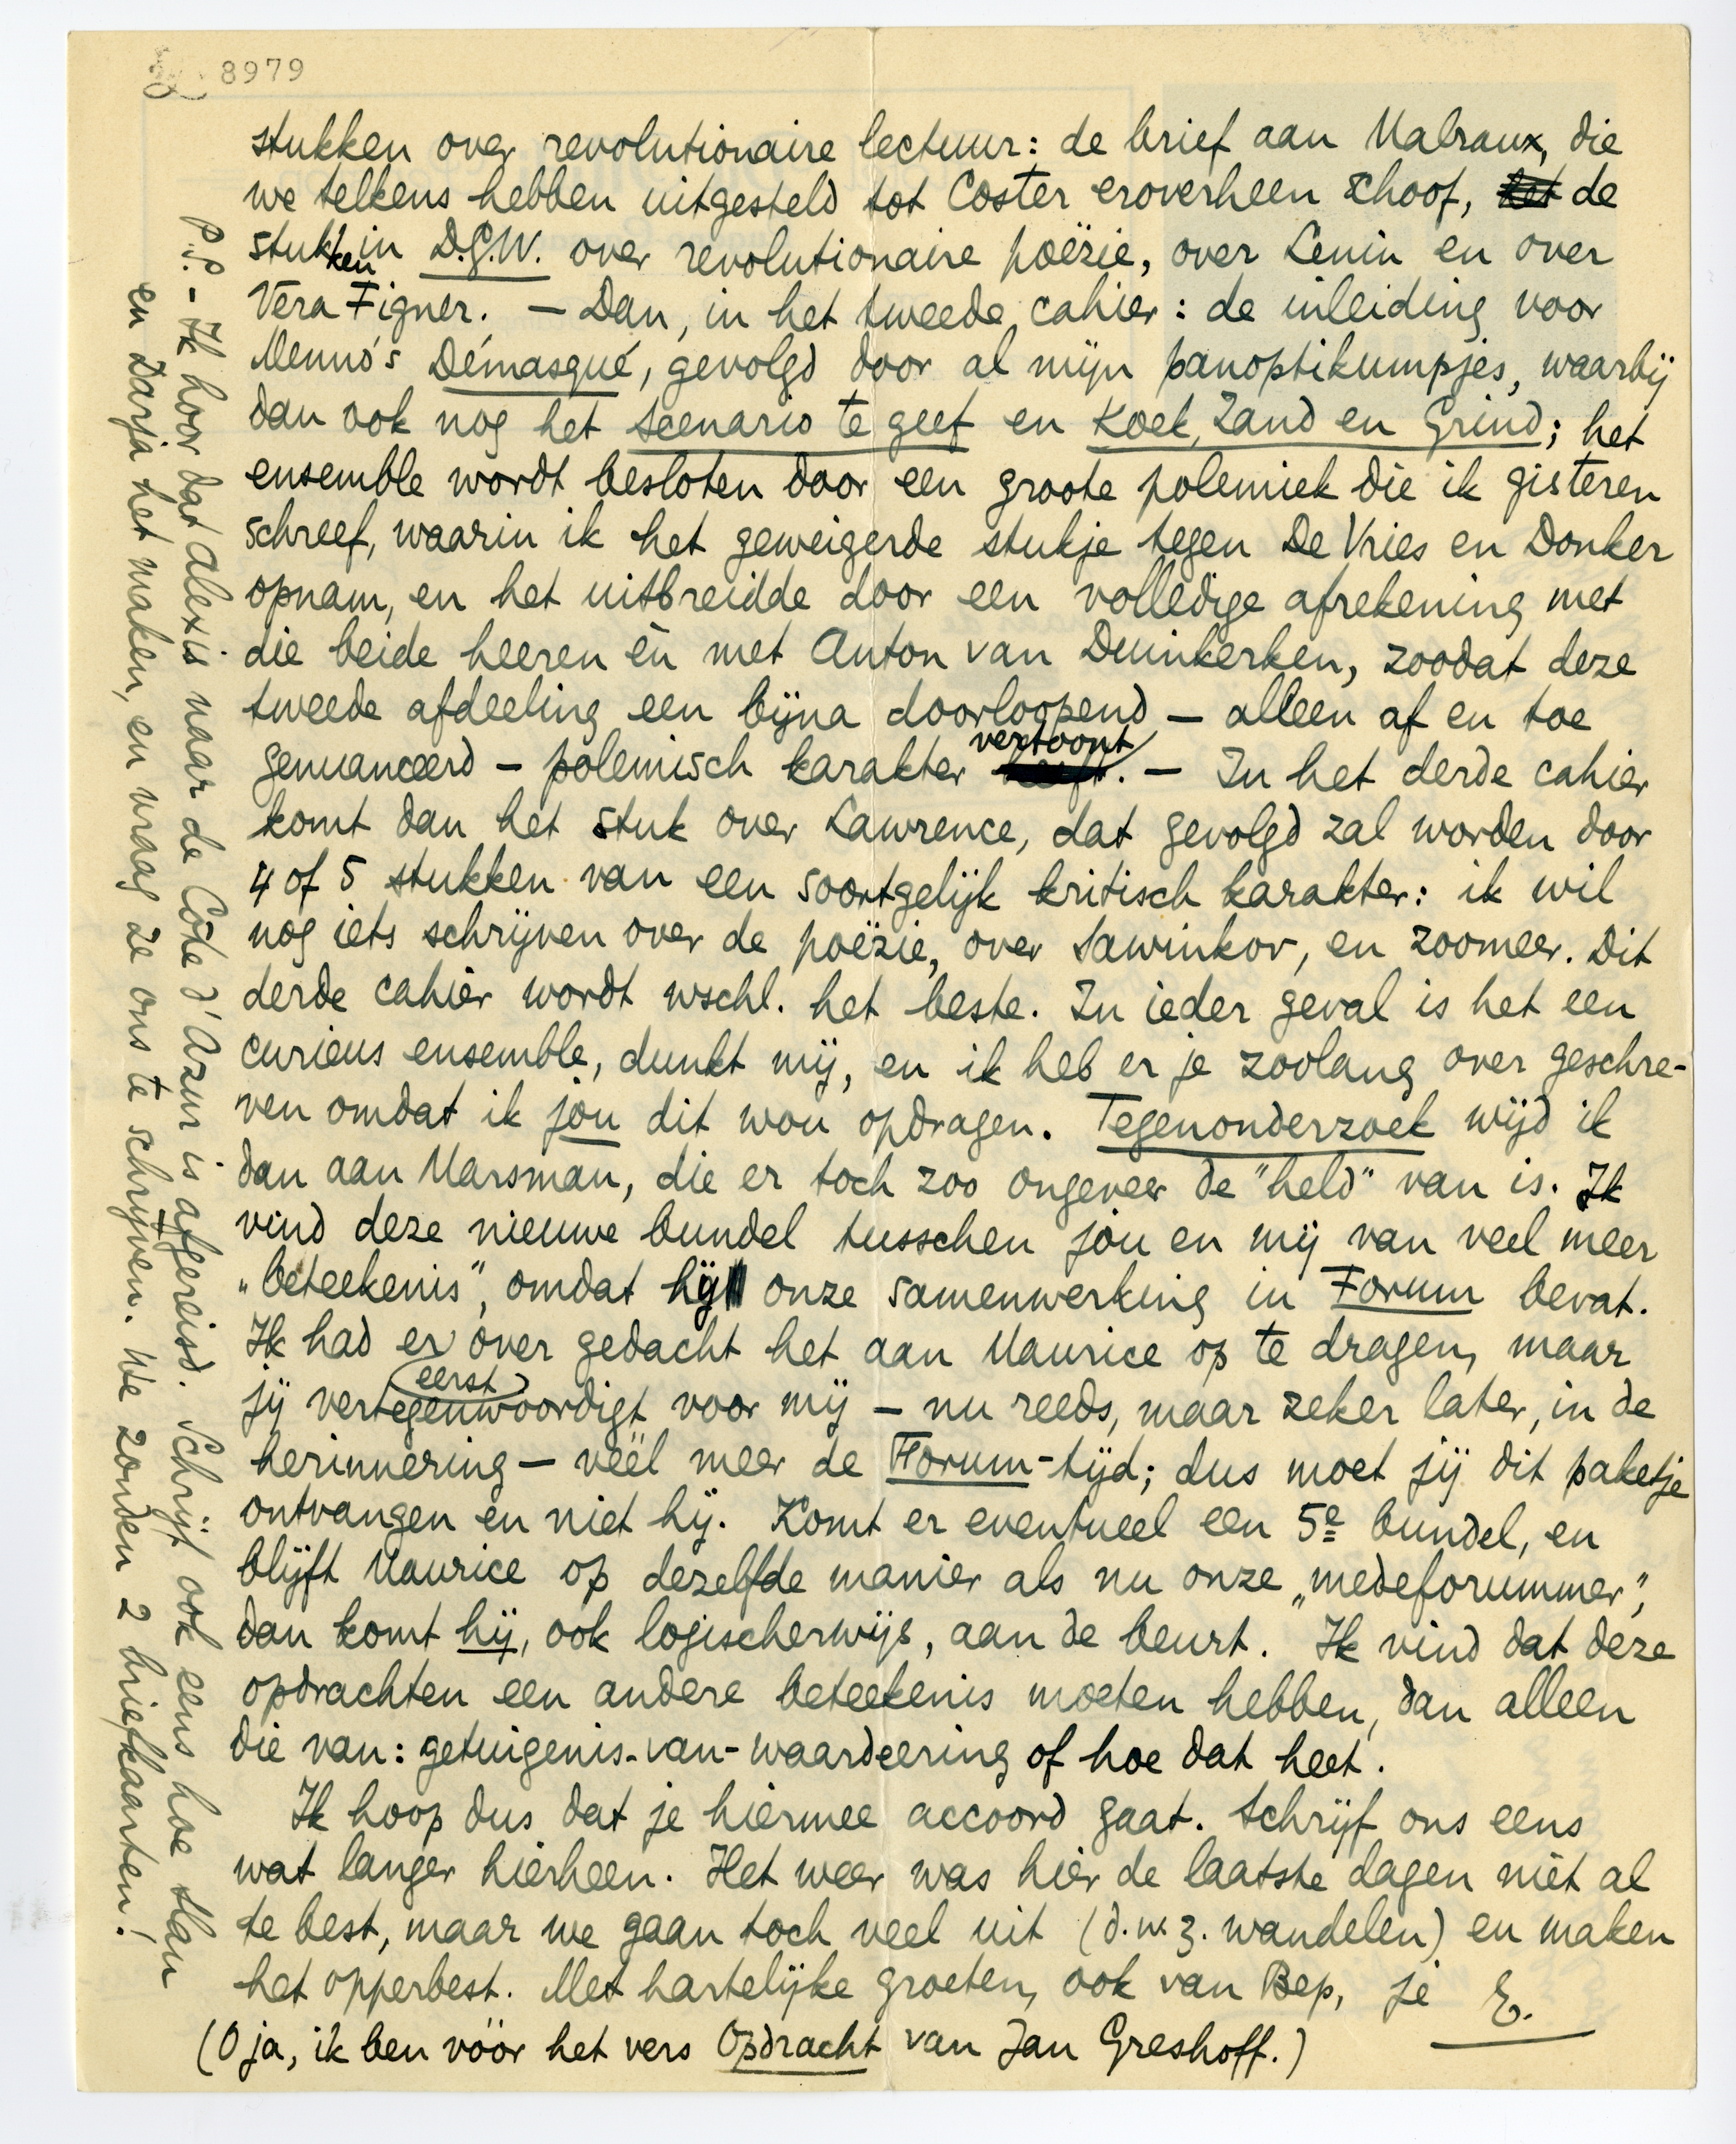 8979
stukken over revolutionaire lectuur: de brief aan Malraux, die
we telkens hebben uitgesteld tot Coster eroverheen schoof, het de
stukken in D.G.W. over revolutionaire poëzie, over Lenin en over
Vera Figner. — Dan, in het tweede cahier: de inleiding voor
Menno's Démasqué, gevolgd door al mijn panoptikumpjes, waarbij
dan ook nog het scenario te geef en Koek, Zand en Grind; het
ensemble wordt besloten door een groote polemiek die ik gisteren
schreef, waarin ik het geweigerde stukje tegen De Vries en Donker
opnam, en het uitbreidde door een volledige afrekening met
die beide heeren èn met Anton van Duinkerken, zoodat deze
tweede afdeeling een bijna doorloopend — alleen af en toe
genuanceerd — polemisch karakter heeft vertoont. — In het derde cahier
komt dan het stuk over Lawrence, dat gevolgd zal worden door
4 of 5 stukken van een soortgelijk kritisch karakter: ik wil
nog iets schrijven over de poëzie, over Sawinkov, en zoomeer. Dit
derde cahier wordt wschl. het beste. In ieder geval is het een
curieus ensemble, dunkt mij, en ik heb er je zoolang over geschre-
ven omdat ik jou dit wou opdragen. Tegenonderzoek wijd ik
dan aan Marsman, die er toch zoo ongeveer de "held" van is. Ik
vind deze nieuwe bundel tusschen jou en mij van veel meer
„beteekenis", omdat hij onze samenwerking in Forum bevat.
Ik had er eerst over gedacht het aan Maurice op te dragen, maar
jij vertegenwoordigt voor mij — nu reeds, maar zeker later, in de
herinnering — véél meer de Forum-tijd; dus moet jij dit paketje
ontvangen en niet hij. Komt er eventueel een 5e bundel, en
blijft Maurice op dezelfde manier als nu onze „medeforummer",
dan komt hij, ook logischerwijs, aan de beurt. Ik vind dat deze
opdrachten een andere beteekenis moeten hebben, dan alleen
die van: getuigenis-van-waardeering of hoe dat heet.
Ik hoop dus dat je hiermee accoord gaat. Schrijf ons eens
wat langer hierheen. Het weer was hier de laatste dagen niet al
te best, maar we gaan toch veel uit (d.w.z. wandelen) en maken
het opperbest. Met hartelijke groeten, ook van Bep, je E.
(O ja, ik ben vóór het vers Opdracht van Jan Greshoff.)
P.P. - Ik hoor dat Alexis naar de Côte d'Azur is afgereisd. Schrijf ook eens hoe Han
en Darja het maken, en vraag ze ons te schrijven. We zonden 2 briefkaarten!